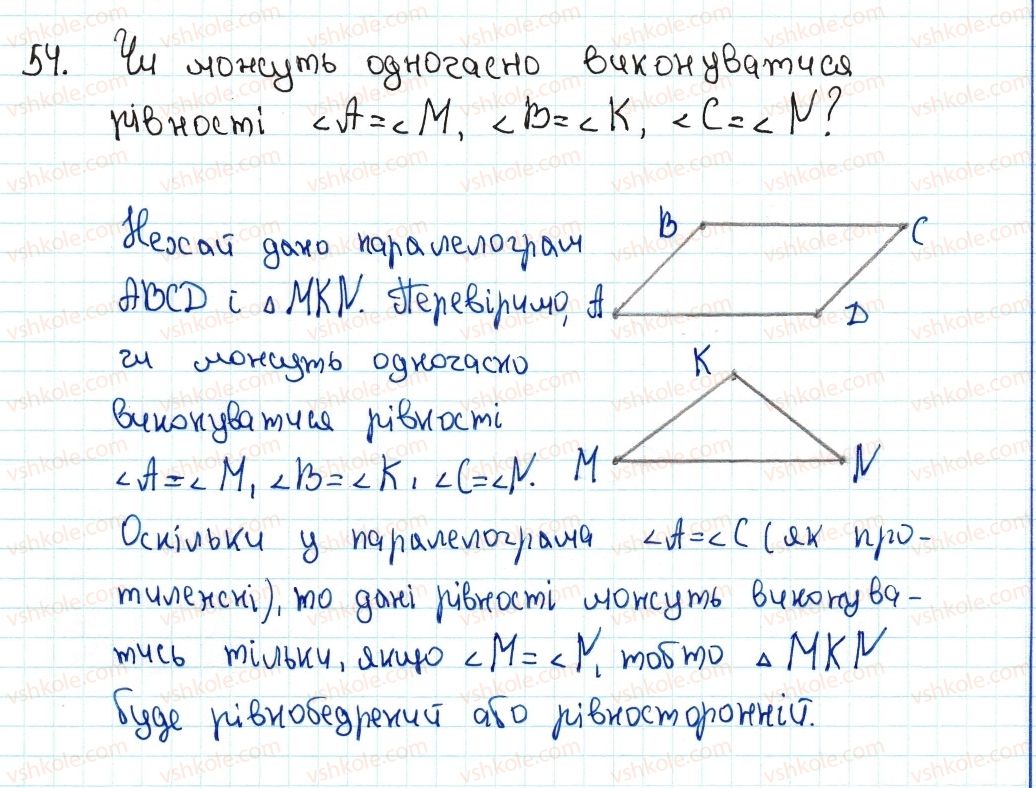 54. Чи можуть одночасно виконуватися
рівності ∠A=∠M, ∠B=∠K, ∠C=∠N?
Нехай дано паралелограм
ABCD і △MKN. Перевіримо,
чи можуть одночасно
виконуватися рівності
∠A=∠M, ∠B=∠K, ∠C=∠N.
B
C
A
D
K
M
N
Оскільки у паралелограма ∠A=∠C (як про-
тилежні), то дані рівності можуть виконува-
тись тільки, якщо ∠M=∠N, тобто △MKN
буде рівнобедрений або рівносторонній.
vshkole.com